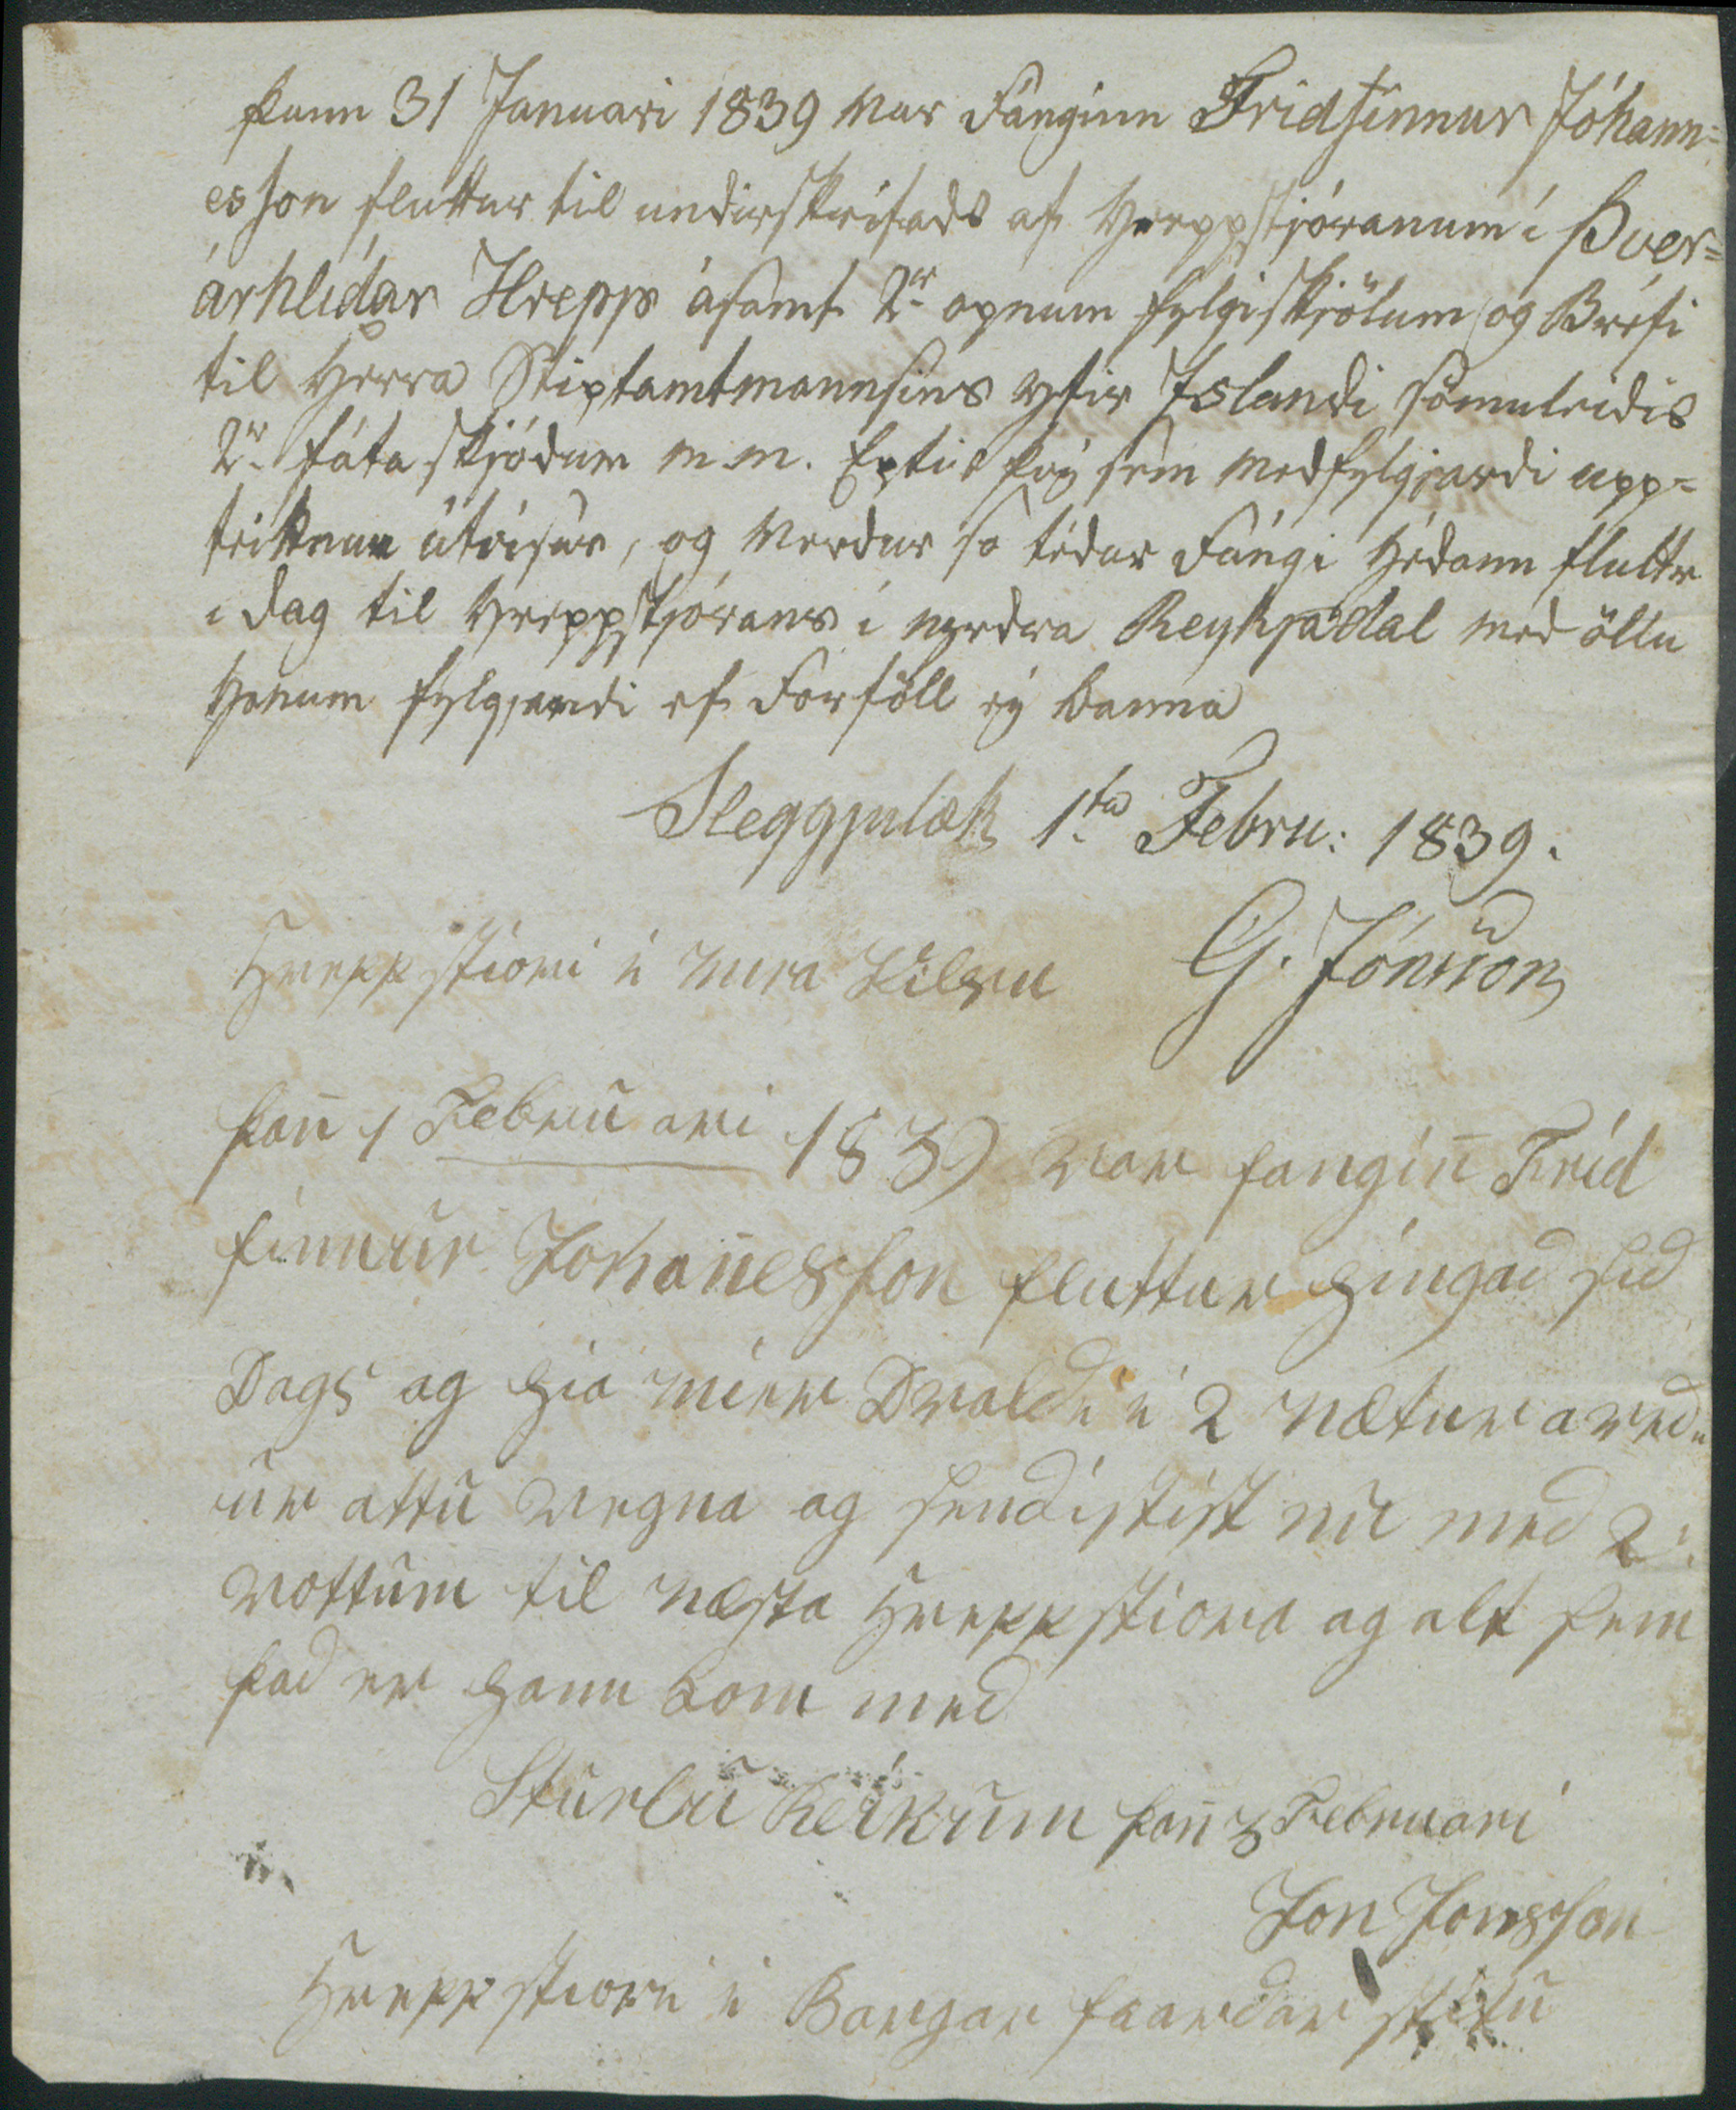 þann 31 Januari 1839 var Fánginn Fridfinnur Jóhann=
es son fluttur til undirskrifads af Hreppstjóranum í Þver=
árhlídar Hrepp ásamt 2r opnum fylgiskjölum og Bréfi
til Herra Stiptamtmannsins yfir Islandi sömuleidis
2r fata skjódum m.m. Eptir því sem medfylgjandi upp=
teiknun útvísar, og verdur so tédur Fángi hédann fluttr
í dag til Hreppstjórans í nyrdra Reykjadal med öllu
honum fylgjandi ef Forföll ej banna
Sleggjulæk 1ta Febru: 1839.
G. Jónsson
þan̄ 1 Februari 1839 var fangin̄ Frid
finnur Johan̄esson fluttur hingad sid
Dags og hia mier Dvaldi i 2 nætur a vedu
ur attu vegna og sendistist nu med 2
vottum til næsta Hreppstiora og alt sem
þad er hann kom med
Sturlu Reikium þan̄ 3 Februari
Jon Jonsson
Hreppstiori i Borgar faardar